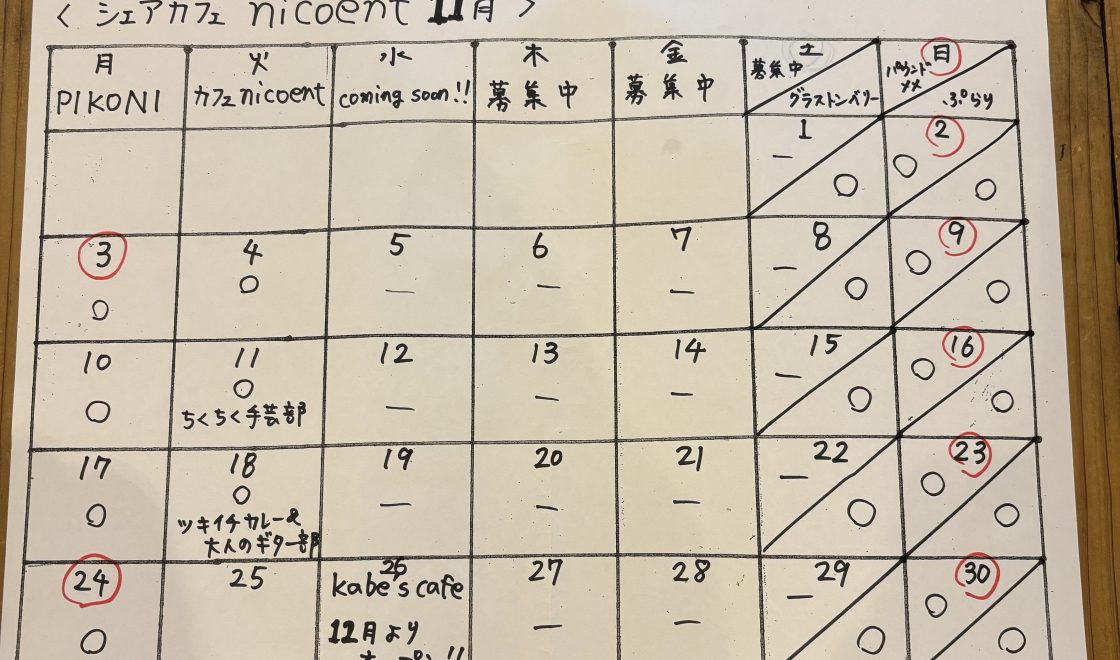 < シェアカフェ nicoent 11月 >
月 火 水 木 金 土 日
PIKONI カフェnicoent coming soon!! 募集中 募集中 募集中 グラストンベリー パウンドメメ ぷらり
1 2
— ○ ○ ○
3 4 5 6 7 8 9
○ ○ — — — — ○ ○ ○
10 11 12 13 14 15 16
○ ○ — — — — ○ ○ ○
ちくちく手芸部
17 18 19 20 21 22 23
○ ○ — — — — ○ ○ ○
ツキイチカレー&
大人のギター部
24 25 26 27 28 29 30
○ kabe's cafe — — — ○ ○ ○
12月より